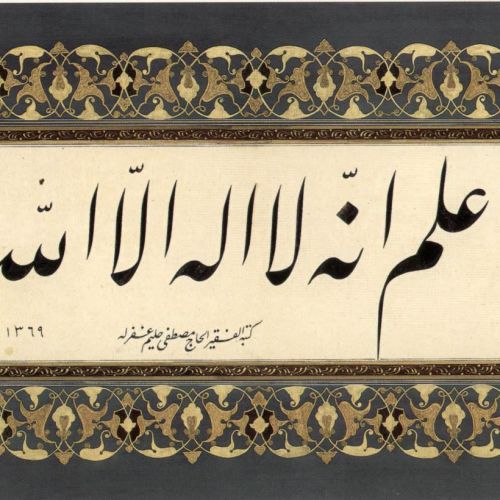 علم انّه لا اله الّا الله
كتبه الفقير الحاج مصطفى حليم غفرله
١٣٦٩